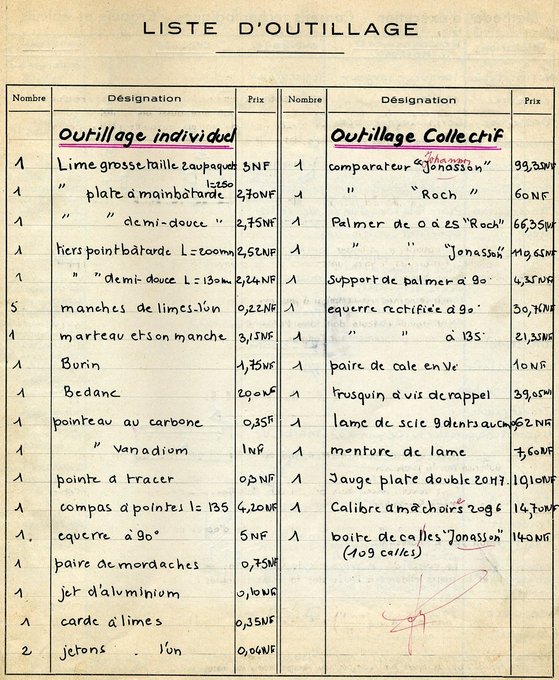 LISTE D'OUTILLAGE
Nombre Désignation Prix Nombre Désignation Prix
Outillage individuel
1 Lime grosse taille 2 au paquet 3NF
l=250
1 " plate à main bâtarde 2,70NF
1 " " demi-douce " 2,75NF
1 tiers point bâtarde L=200mm 2,52NF
1 " " demi-douce L=130mm 2,24NF
5 manches de limes l'un 0,22NF
1 marteau et son manche 3,15NF
1 Burin 1,75NF
1 Bedane 2,00NF
1 pointeau au carbone 0,35F
1 " Vanadium 1NF
1 pointe a tracer 0,3NF
1 compas à pointes l=135 4,20NF
1. equerre à 90° 5NF
1 paire de mordaches 0,75NF
1 jet d'aluminium 0,10NF
1 carde à limes 0,35NF
2 jetons . l'un 0,04NF
Outillage Collectif
Johanson
1 comparateur "Jonasson" 99,35NF
1 " "Roch" 60NF
1 Palmer de 0 à 25 "Roch" 66,35NF
1 " " "Jonasson" 110,65NF
1 support de palmer à 90° 4,35NF
1 equerre rectifiée à 90° 30,75NF
1 " " à 135° 21,35NF
1 paire de cale en Vé 10NF
1 trusquin à vis de rappel 39,05NF
1 lame de scie 9 dents au cm 0,62NF
1 monture de lame 7,60NF
1 Jauge plate double 2017. 10,10NF
1 Calibre à mâchoire 2096 14,70NF
1 boite de calles "Jonasson" 140NF
(109 calles)